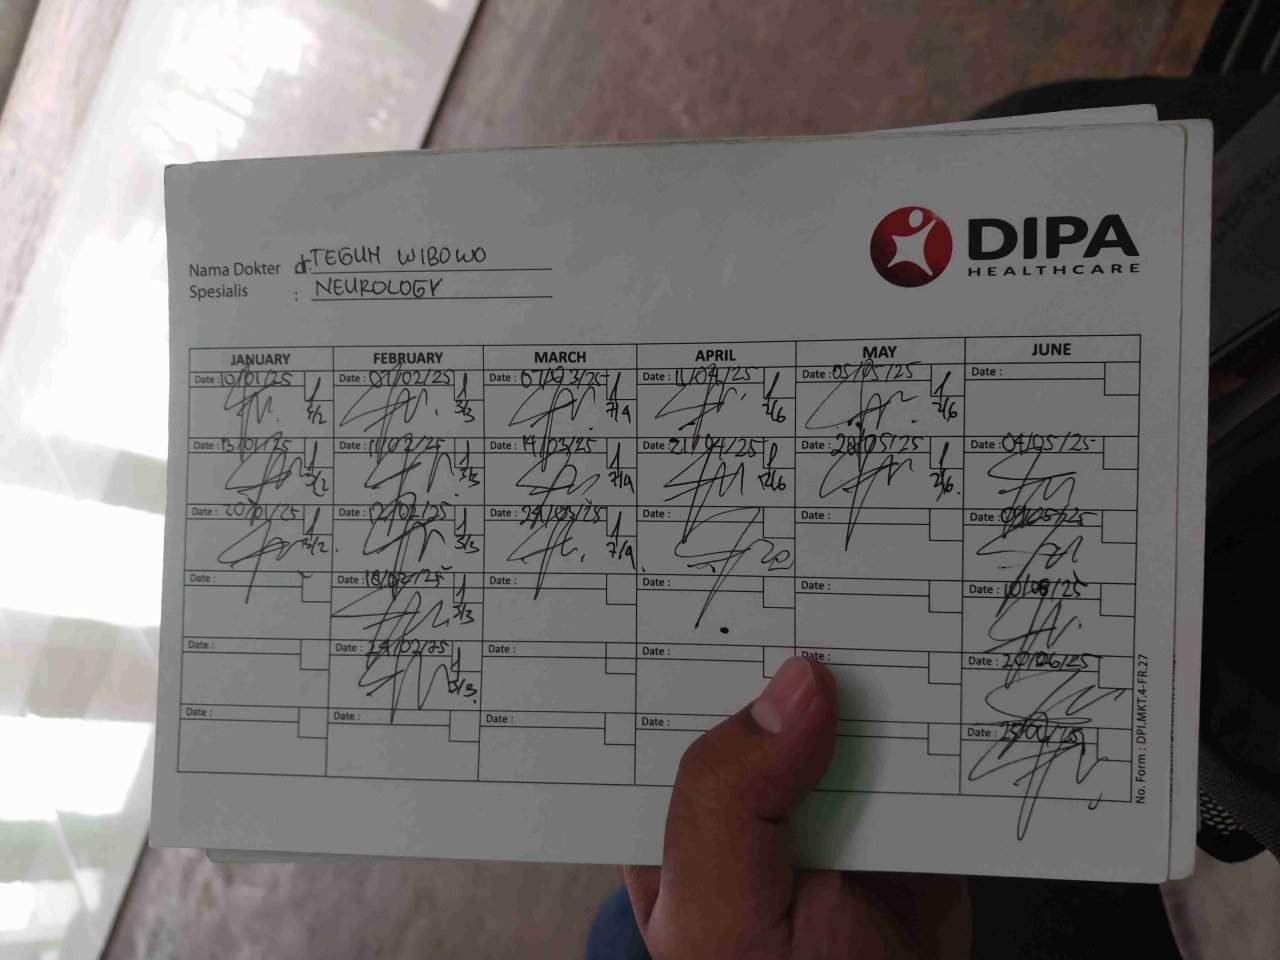 DIPA
HEALTHCARE
Nama Dokter dr. TEGUH WIBOWO
Spesialis : NEUROLOGY
JANUARY FEBRUARY MARCH APRIL MAY JUNE
Date : 10/01/25 Date : 07/02/25 Date : 07/03/25 Date : 11/04/25 Date : 05/05/25 Date :
3/2 3/3 7/4 2/6 2/6
Date : 13/01/25 Date : 11/02/25 Date : 14/03/25 Date : 21/04/25 Date : 28/05/25 Date : 04/05/25
3/2 3/3 7/4 2/6 2/6.
Date : 20/01/25 Date : 12/02/25 Date : 24/03/25 Date : Date : Date : 09/05/25
3/2. 3/3 7/4
Date : Date : 18/02/25 Date : Date : Date : Date : 10/06/25
3/3
Date : Date : 24/02/25 Date : Date : Date : Date : 20/06/25
3/3.
Date : Date : Date : Date : Date : 25/06/25
No. Form : DPI.MKT.4-FR.27